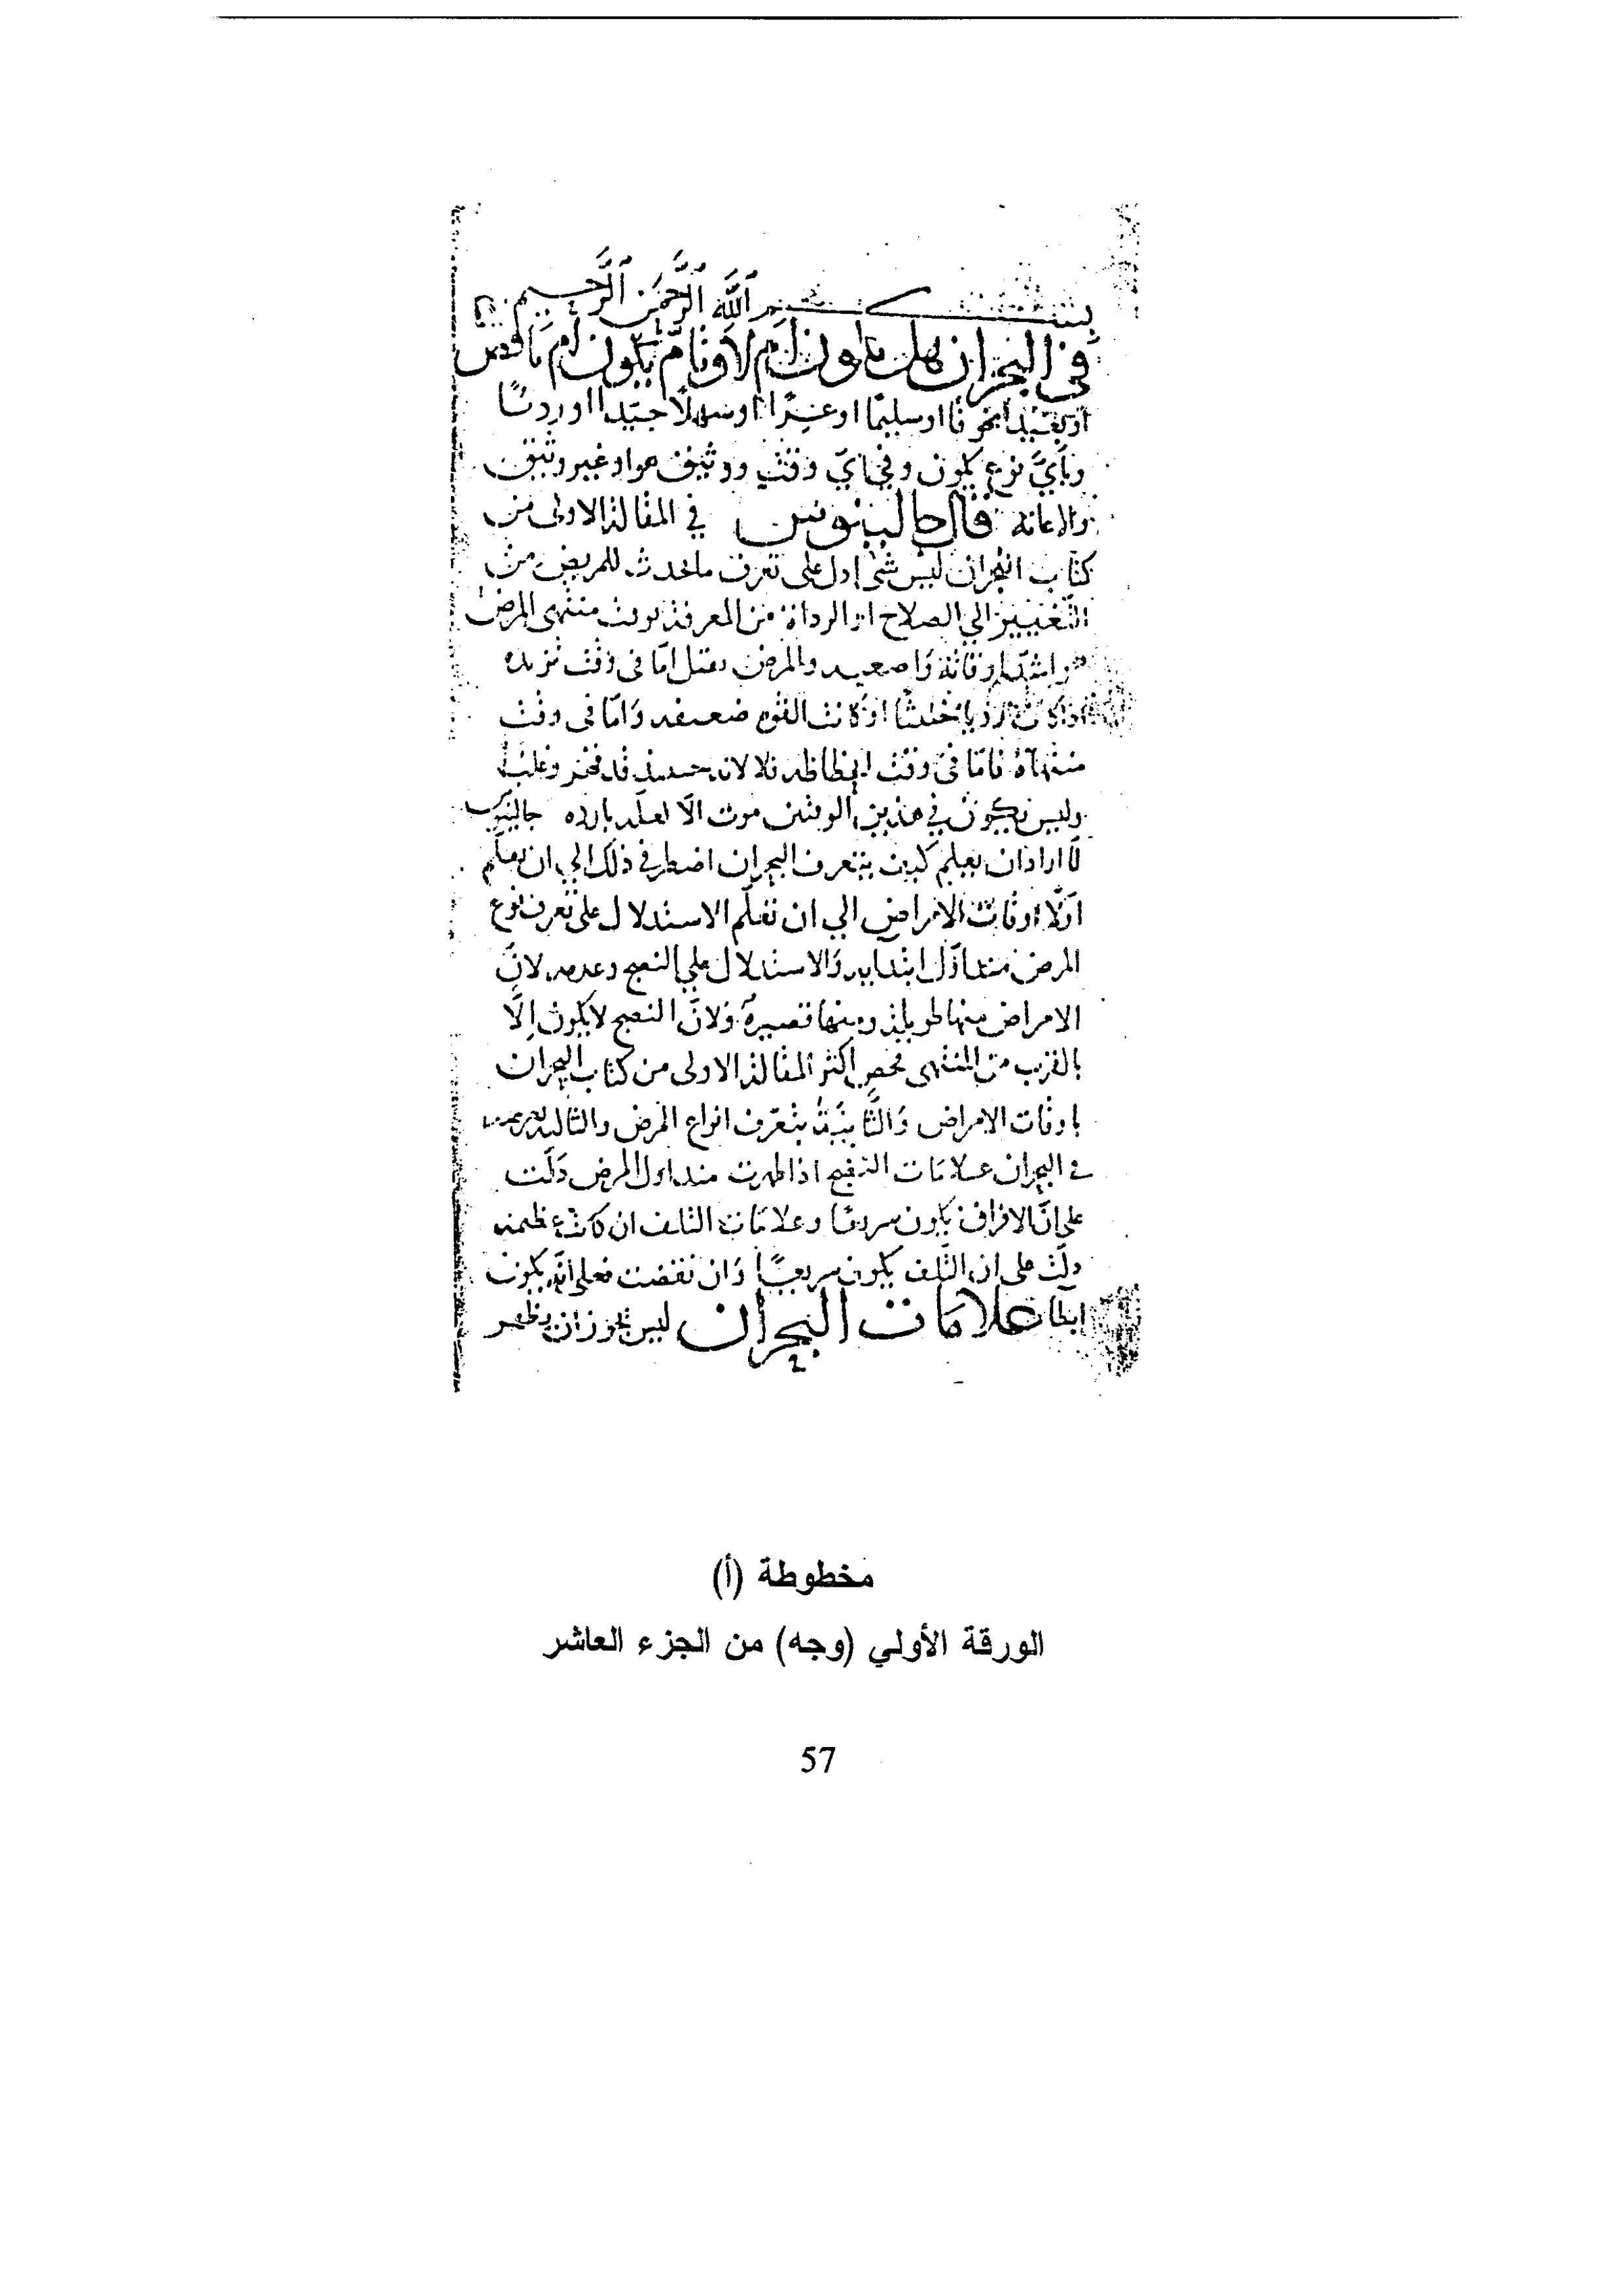 بسم الله الرحمن الرحيم
في البحران هل يكون ام لا وتام يكون ام ناقص
او سليما او عسرا او سهلا جيدا او رديا
وبأي نوع يكون وفي اي وقت ووثيق هو او غير وثيق
قال جالينوس في المقالة الاولى من
كتاب البحران ليس شى ادل على تعرف ما يحدث للمريض من
التغيير الي الصلاح او الرداة من المعرفة بوقت منتهى المرض
والمرض يقتل اما في وقت تزيده
او كانت القوه ضعيفه واما في وقت
منتهاه فاما في وقت انحطاطه فلا لانه حينيذ قد
وليس يكون في هذين الوقتين موت الا لعله بارده جالينوس
لما اراد ان يعلم كيف يتعرف البحران اضطر في ذلك الي ان يعلم
اولا اوقات الامراض الي ان تعلم الاستدلال على تعرف نوع
المرض منذ اول ابتدايه والاستدلال علي النضج وعدمه لان
الامراض منها طويلة ومنها قصيرة ولان النضج لا يكون إلا
بالقرب من المنتهى فحص اكثر المقالة الاولى من كتاب البحران
باوقات الامراض والثانية بتعرف انواع المرض والثالثة
في البحران علامات النضج اذا ظهرت منذ اول المرض دلت
على ان الافراق يكون سريعا وعلامات التلف ان كانت عظيمه
دلت على ان التلف يكون سريعا وان نقضت فعلى انه يكون
ابطا علامات البحران ليس يجوز ان يظهر
مخطوطة (أ)
الورقة الأولي (وجه) من الجزء العاشر
57